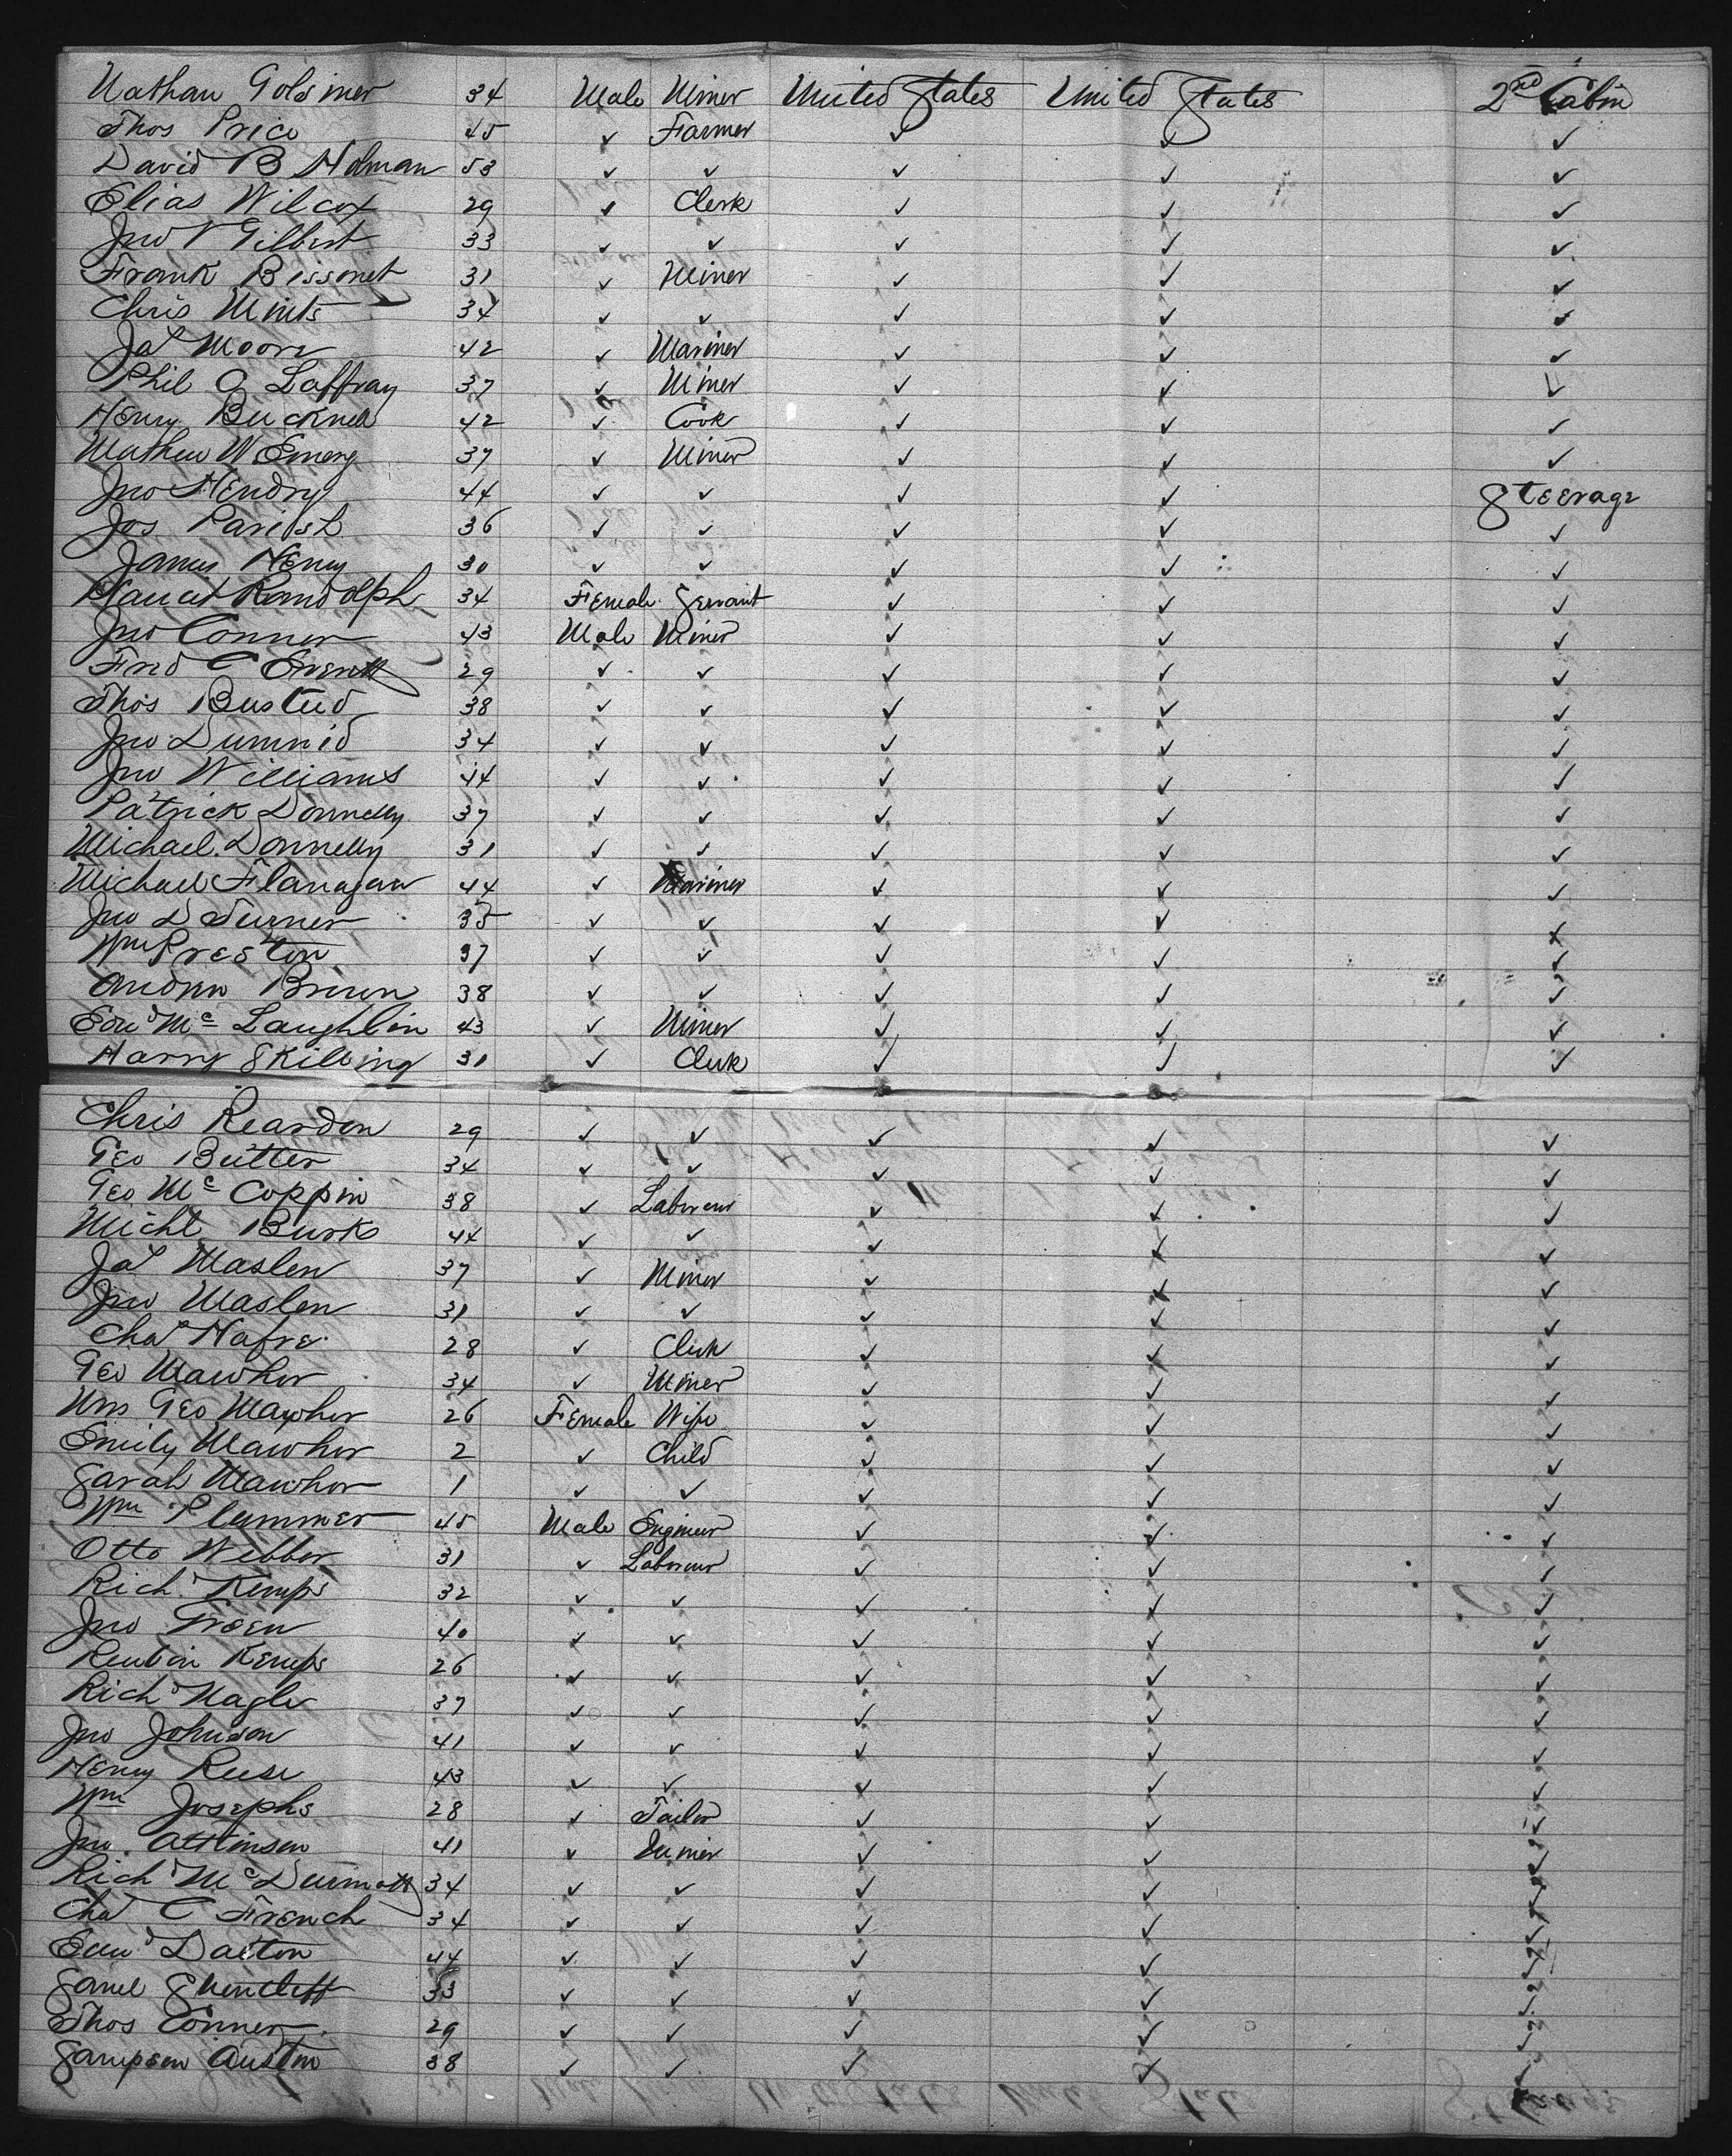 Nathan Golsmer 34 Male Miner United States United States 2nd Cabin
Thos Price 45 ✓ Farmer ✓ ✓ ✓
David B Holman 53 ✓ ✓ ✓ ✓ ✓
Elias Wilcox 29 ✓ Clerk ✓ ✓ ✓
Jno V Gilbert 33 ✓ ✓ ✓ ✓ ✓
Frank Bissonet 31 ✓ Miner ✓ ✓ ✓
Chris Mints 34 ✓ ✓ ✓ ✓ ✓
Jas Moore 42 ✓ Mariner ✓ ✓ ✓
Phil O Laffray 37 ✓ Miner ✓ ✓ ✓
Henry Bucknell 42 ✓ Cook ✓ ✓ ✓
Mathew W Emery 37 ✓ Miner ✓ ✓ ✓
Jno Hendry 44 ✓ ✓ ✓ ✓ Steerage
Jos Parish 36 ✓ ✓ ✓ ✓ ✓
James Henry 30 ✓ ✓ ✓ ✓ ✓
Randolph 34 Female Servant ✓ ✓ ✓
Jno Conner 43 Male Miner ✓ ✓ ✓
Fred C Everett 29 ✓ ✓ ✓ ✓ ✓
Thos Busteed 38 ✓ ✓ ✓ ✓ ✓
Jno 34 ✓ ✓ ✓ ✓ ✓
Jno Williams 44 ✓ ✓ ✓ ✓ ✓
Patrick Donnelly 37 ✓ ✓ ✓ ✓ ✓
Michael Donnelly 31 ✓ ✓ ✓ ✓ ✓
Michael Flanagan 44 ✓ Mariner ✓ ✓ ✓
Jno D Turner 35 ✓ ✓ ✓ ✓ ✓
Wm Preston 37 ✓ ✓ ✓ ✓ ✓
Andrew Brown 38 ✓ ✓ ✓ ✓ ✓
Edwd Mc Laughlin 43 ✓ Miner ✓ ✓ ✓
Harry Skilling 31 ✓ Clerk ✓ ✓ ✓
Chris Reardon 29 ✓ ✓ ✓ ✓ ✓
Geo Butter 34 ✓ ✓ ✓ ✓ ✓
Geo Mc Coppin 38 ✓ Laborour ✓ ✓ ✓
Michl Burke 44 ✓ ✓ ✓ ✓ ✓
Jas Maslen 37 ✓ Miner ✓ ✓ ✓
Jno Maslen 31 ✓ ✓ ✓ ✓ ✓
Chas Hafre 28 ✓ Clerk ✓ ✓ ✓
Geo Mawhor 34 ✓ Miner ✓ ✓ ✓
Mrs Geo Mawhor 26 Female Wife ✓ ✓ ✓
Emily Mawhor 2 ✓ Child ✓ ✓ ✓
Sarah Mawhor 1 ✓ ✓ ✓ ✓ ✓
Wm Plummer 45 Male Engineer ✓ ✓ ✓
Otto Webber 31 ✓ Laborour ✓ ✓ ✓
Richd Kemps 32 ✓ ✓ ✓ ✓ ✓
Jno Troen 40 ✓ ✓ ✓ ✓ ✓
Reubin Kemps 26 ✓ ✓ ✓ ✓ ✓
Richd Nagle 37 ✓ ✓ ✓ ✓ ✓
Jno Johnson 41 ✓ ✓ ✓ ✓ ✓
Henry Reese 43 ✓ ✓ ✓ ✓ ✓
Wm Josephs 28 ✓ Tailor ✓ ✓ ✓
Jno Attkinson 41 ✓ Miner ✓ ✓ ✓
Richd Mc Durmott 34 ✓ ✓ ✓ ✓ ✓
Chas C French 34 ✓ ✓ ✓ ✓ ✓
Edwd Dalton 44 ✓ ✓ ✓ ✓ ✓
Saml Shentleff 33 ✓ ✓ ✓ ✓ ✓
Thos Conner 29 ✓ ✓ ✓ ✓ ✓
Sampson Auston 38 ✓ ✓ ✓ ✓ ✓